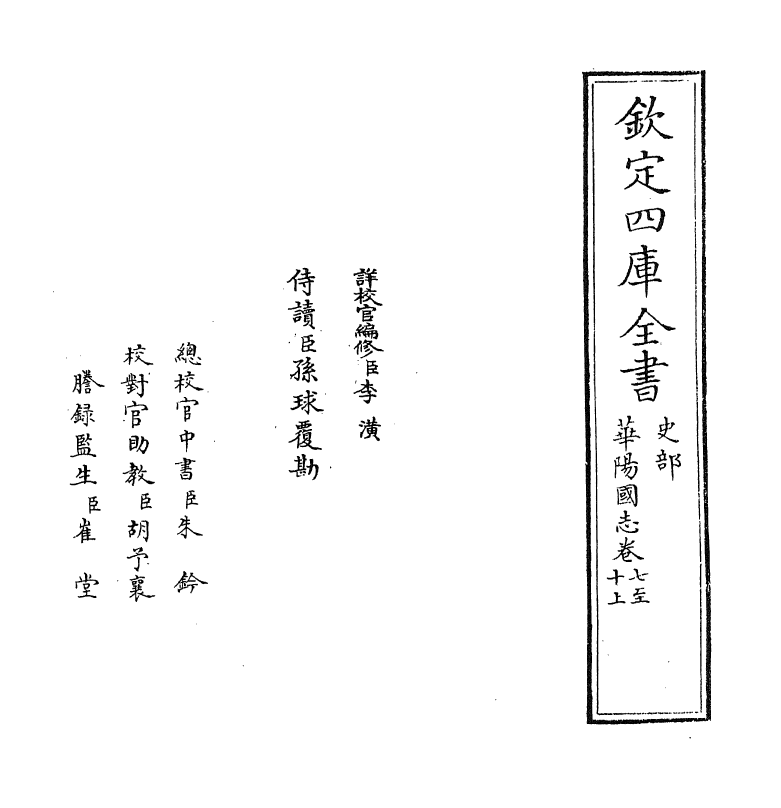 欽定四庫全書
史部
華陽國志卷七至
十上
詳校官編修臣李潢
侍讀臣孫球覆勘
總校官中書臣朱鈐
校對官助教臣胡予襄
謄録監生臣崔堂